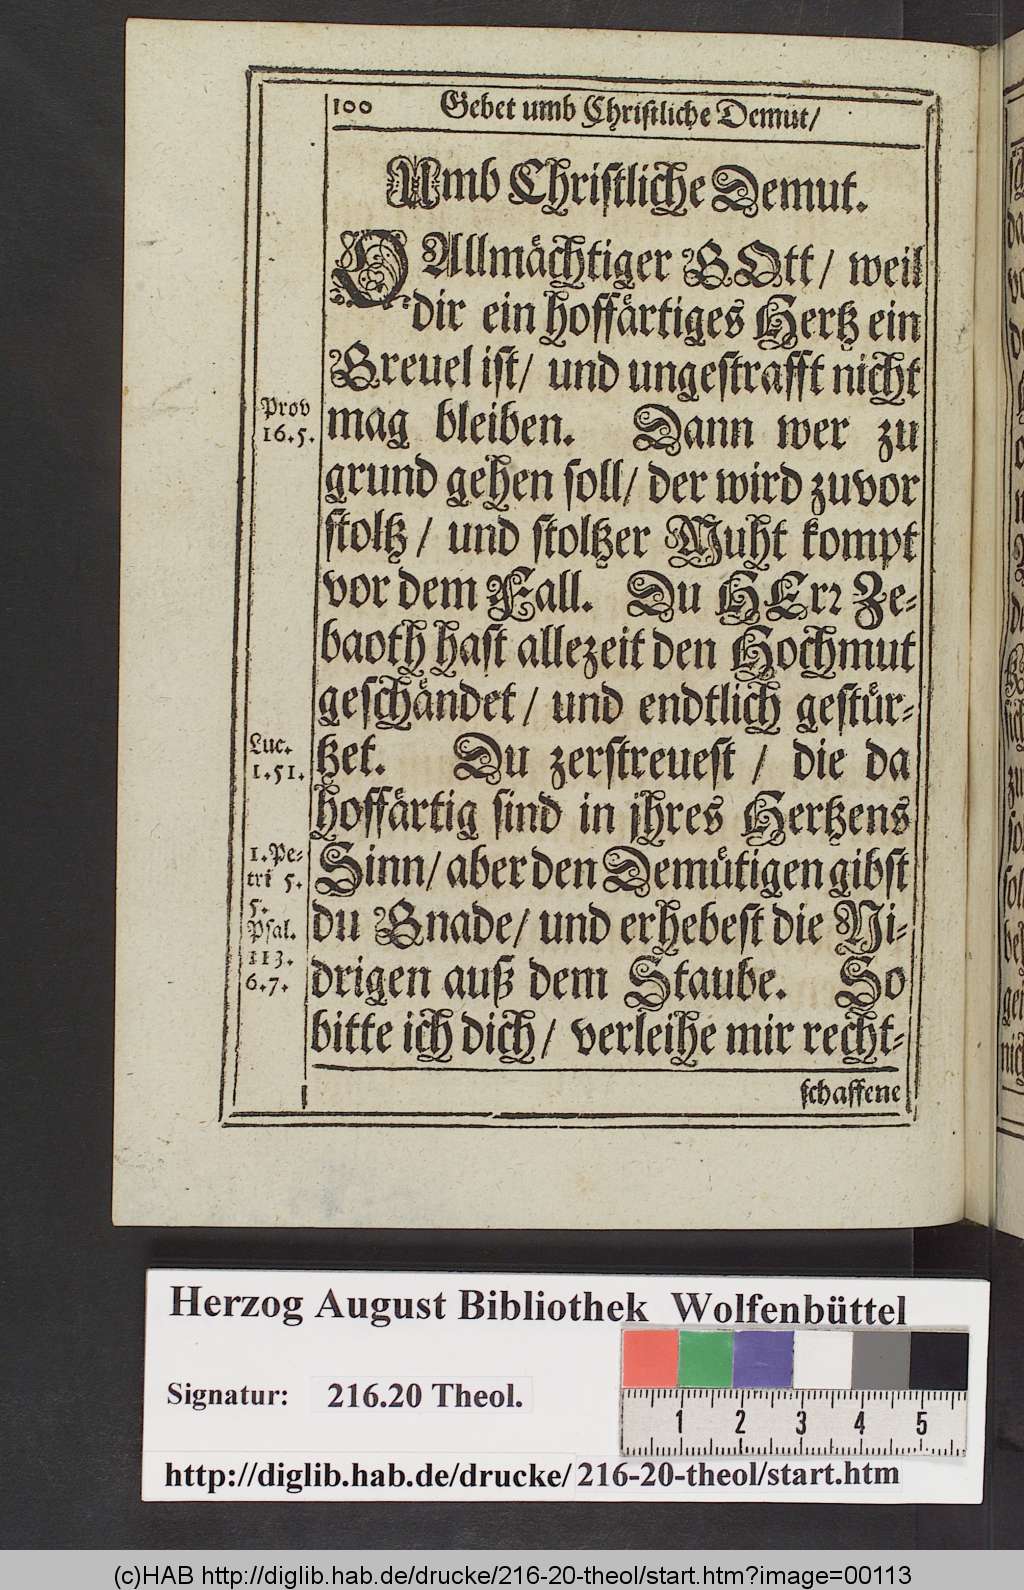 100 Gebet umb Christliche Demut/
Umb Christliche Demut.
O Allmächtiger GOtt/ weil
dir ein hoffärtiges Hertz ein
Greuel ist/ und ungestrafft nicht
Prov
16.5.
mag bleiben. Dann wer zu
grund gehen soll/ der wird zuvor
stoltz/ und stoltzer Muht kompt
vor dem Fall. Du HErr Ze-
baoth hast allezeit den Hochmut
geschändet/ und endtlich gestür-
Luc.
1.51.
tzet. Du zerstreuest/ die da
hoffärtig sind in jhres Hertzens
1.Pe-
tri 5.
5.
Sinn/ aber den Demütigen gibst
Psal.
113.
6.7.
du Gnade/ und erhebest die Ni-
drigen auß dem Staube. So
bitte ich dich/ verleihe mir recht-
schaffene
Herzog August Bibliothek Wolfenbüttel
Signatur: 216.20 Theol.
1 2 3 4 5
http://diglib.hab.de/drucke/216-20-theol/start.htm
(c)HAB http://diglib.hab.de/drucke/216-20-theol/start.htm?image=00113